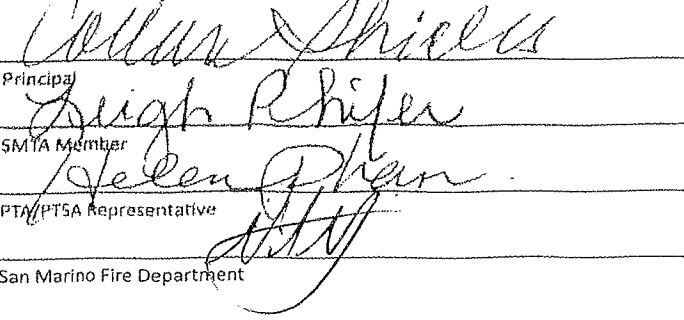 Shields
Principal
Leigh
SMTA Member
Helen Phan
PTA/PTSA Representative
San Marino Fire Department